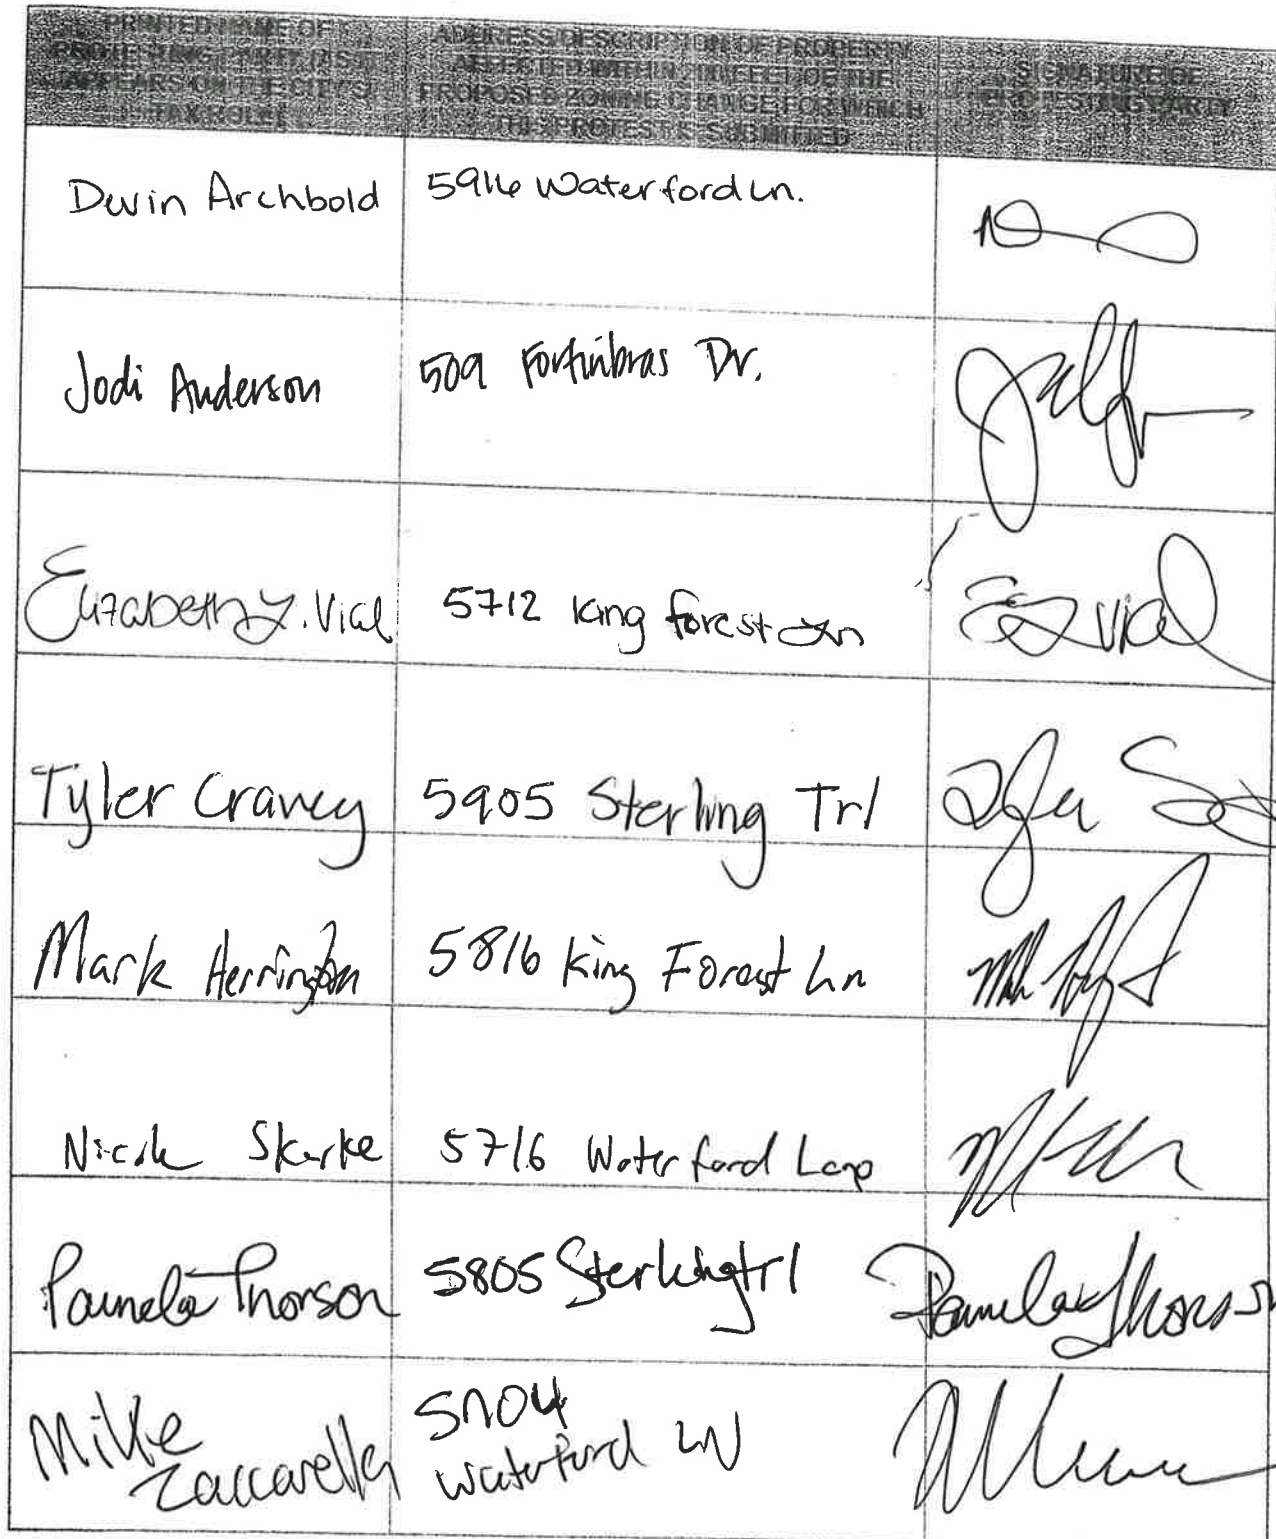 PRINTED NAME OF
PROTESTING PARTY (AS
APPEARS ON THE CITY'S
TAX ROLES)
ADDRESS/DESCRIPTION OF PROPERTY
AFFECTED WITHIN 200 FEET OF THE
PROPOSED ZONING CHANGE FOR WHICH
THIS PROTEST IS SUBMITTED
SIGNATURE OF
PROTESTING PARTY
Devin Archbold
5916 Waterford Ln.
Jodi Anderson
509 Fortinbras Dr.
Elizabeth L. Vial
5712 King forest Ln
EL Vial
Tyler Cravey
5905 Sterling Trl
Mark Herrington
5816 King Forest Ln
Nicole Skarke
5716 Waterford Lane
Pamela Thorson
5805 Sterling trl
Pamela Thorson
Mike
Zaccarella
5704
Waterford LN